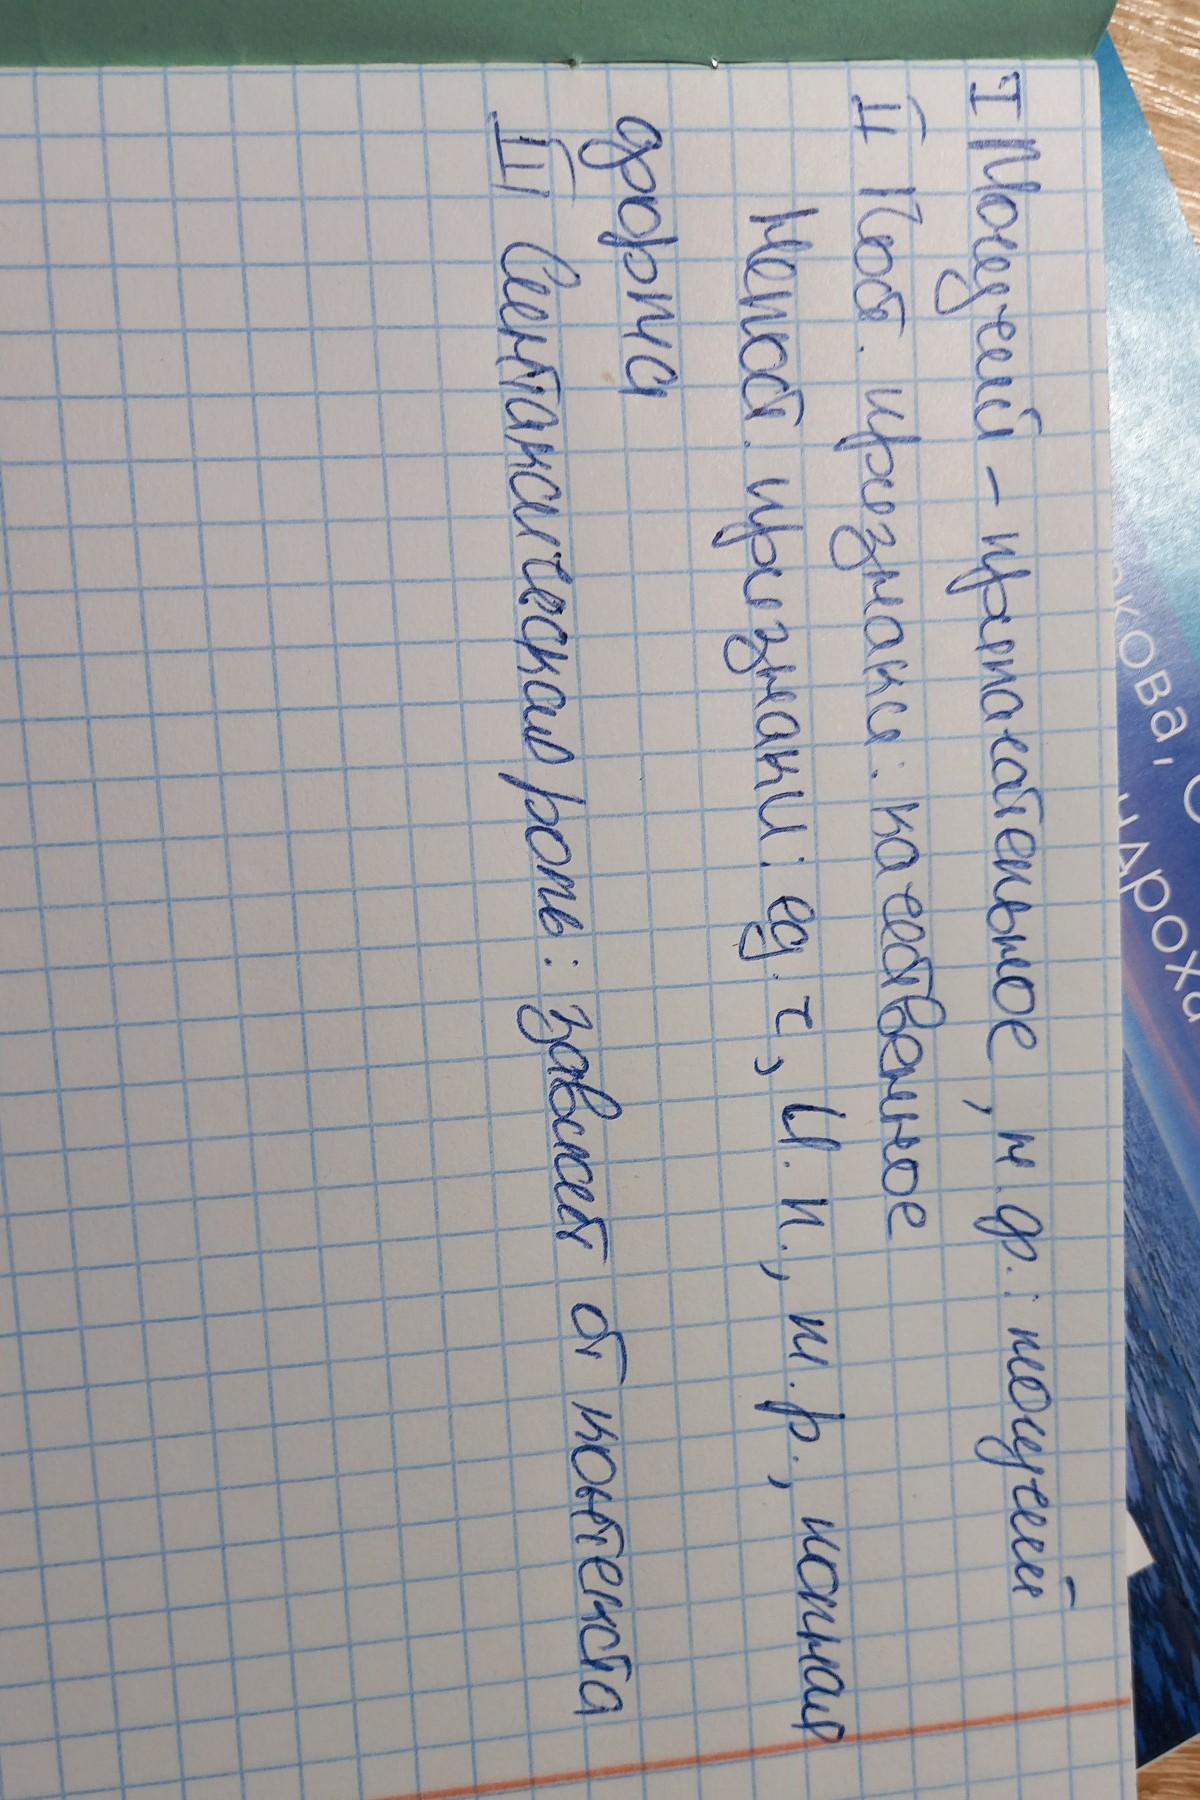 I Могучий – прилагательное, н.ф.: могучий
II Пост. признаки: качественное
Непост. признаки: ед. ч, И. п., м.р., полная
форма
III Синтаксическая роль: зависит от контекста
кова,
ндроха